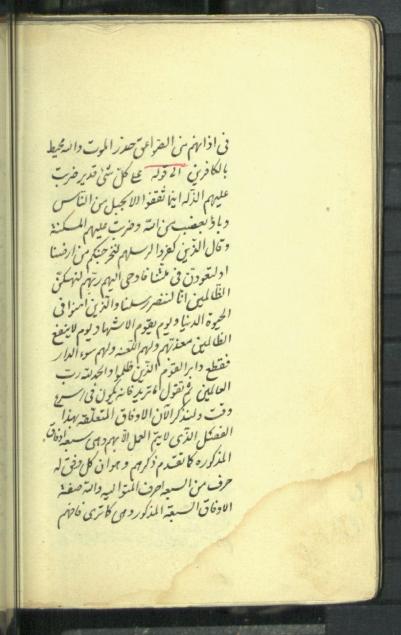 فى اذانهم من الصواعق حذر الموت والله محيط
بالكافرين الى قوله على كل شئ قدير ضربت
عليهم الذلة اينما ثقفوا الا بحبل من الناس
وباؤا بغضب من الله وضربت عليهم المسكنة
وقال الذين كفروا لرسلهم لنخرجنكم من ارضنا
او لتعودن فى ملتنا فاوحى اليهم ربهم لنهلكن
الظالمين انا لننصر رسلنا والذين امنوا فى
الحيوة الدنيا ويوم يقوم الاشهاد يوم لا ينفع
الظالمين معذرتهم ولهم اللعنه ولهم سوء الدار
فقطع دابر القوم الذين ظلموا والحمد لله رب
العالمين ثم تقول ما تريد فانه يكون فى اسرع
وقت ولنذكر الان الاوفاق المتعلقه بهذا
الفصل الذى لا يتم العمل الا بهم وهى سبعة اوفاق
المذكوره كما تقدم ذكرهم وهو ان كل وفق له
حرف من السبعه احرف المتواليه والله صفة
الاوفاق السبعة المذكور وهى كما ترى فافهم